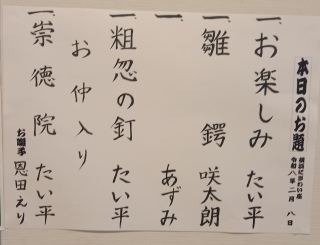 本日のお題
横浜にぎわい座
令和八年二月八日
一、お楽しみ たい平
一、雛鍔 咲太朗
一、 あずみ
一、粗忽の釘 たい平
お仲入り
一、崇徳院 たい平
お囃子 恩田えり